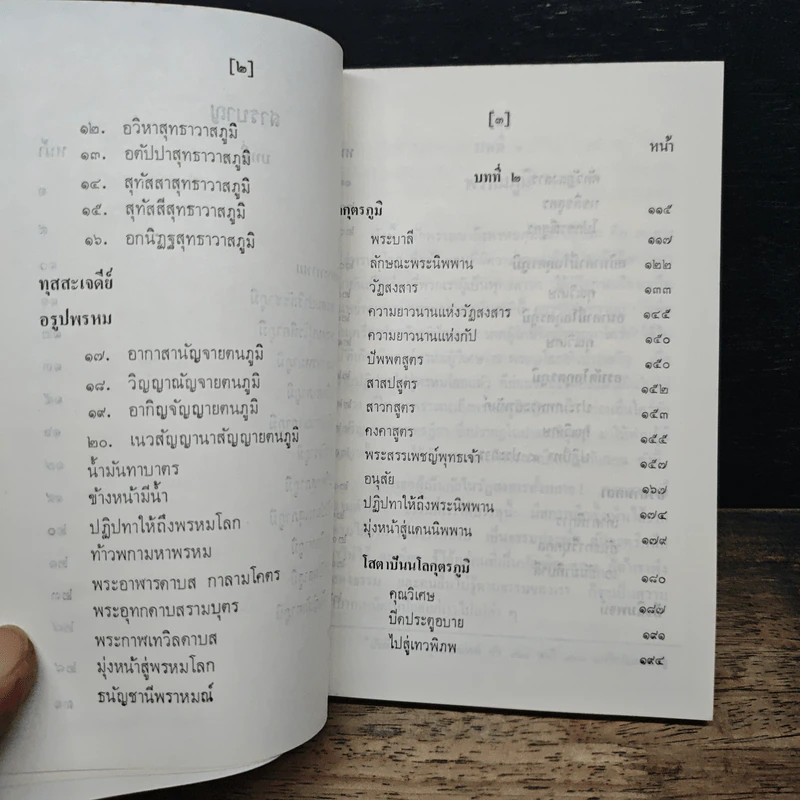 [๒]
๑๒. อวิหาสุทธาวาสภูมิ
๑๓. อตัปปาสุทธาวาสภูมิ
๑๔. สุทัสสาสุทธาวาสภูมิ
๑๕. สุทัสสีสุทธาวาสภูมิ
๑๖. อกนิฏฐสุทธาวาสภูมิ
ทุสสะเจดีย์
อรูปพรหม
๑๗. อากาสานัญจายตนภูมิ
๑๘. วิญญาณัญจายตนภูมิ
๑๙. อากิญจัญญายตนภูมิ
๒๐. เนวสัญญานาสัญญายตนภูมิ
น้ำมันทาบาตร
ข้างหน้ามีน้ำ
ปฏิปทาให้ถึงพรหมโลก
ท้าวพกามหาพรหม
พระอาฬารดาบส กาลามโคตร
พระอุทกดาบสรามบุตร
พระกาฬเทวิลดาบส
มุ่งหน้าสู่พรหมโลก
ธนัญชานีพราหมณ์
[๓]
หน้า
บทที่ ๒
กุตรภูมิ ๑๑๕
พระบาลี ๑๑๗
ลักษณะพระนิพพาน ๑๒๒
วัฏสงสาร ๑๓๓
ความยาวนานแห่งวัฏสงสาร ๑๔๕
ความยาวนานแห่งกัป ๑๕๐
ปัพพตสูตร ๑๕๐
สาสปสูตร ๑๕๒
สาวกสูตร ๑๕๓
คงคาสูตร ๑๕๕
พระสรรเพชญ์พุทธเจ้า ๑๕๗
อนุสัย ๑๖๗
ปฏิปทาให้ถึงพระนิพพาน ๑๗๔
มุ่งหน้าสู่แดนนิพพาน ๑๗๙
โสดาปันนโลกุตรภูมิ ๑๘๐
คุณวิเศษ ๑๘๗
ปิดประตูอบาย ๑๙๑
ไปสู่เทวพิภพ ๑๙๔